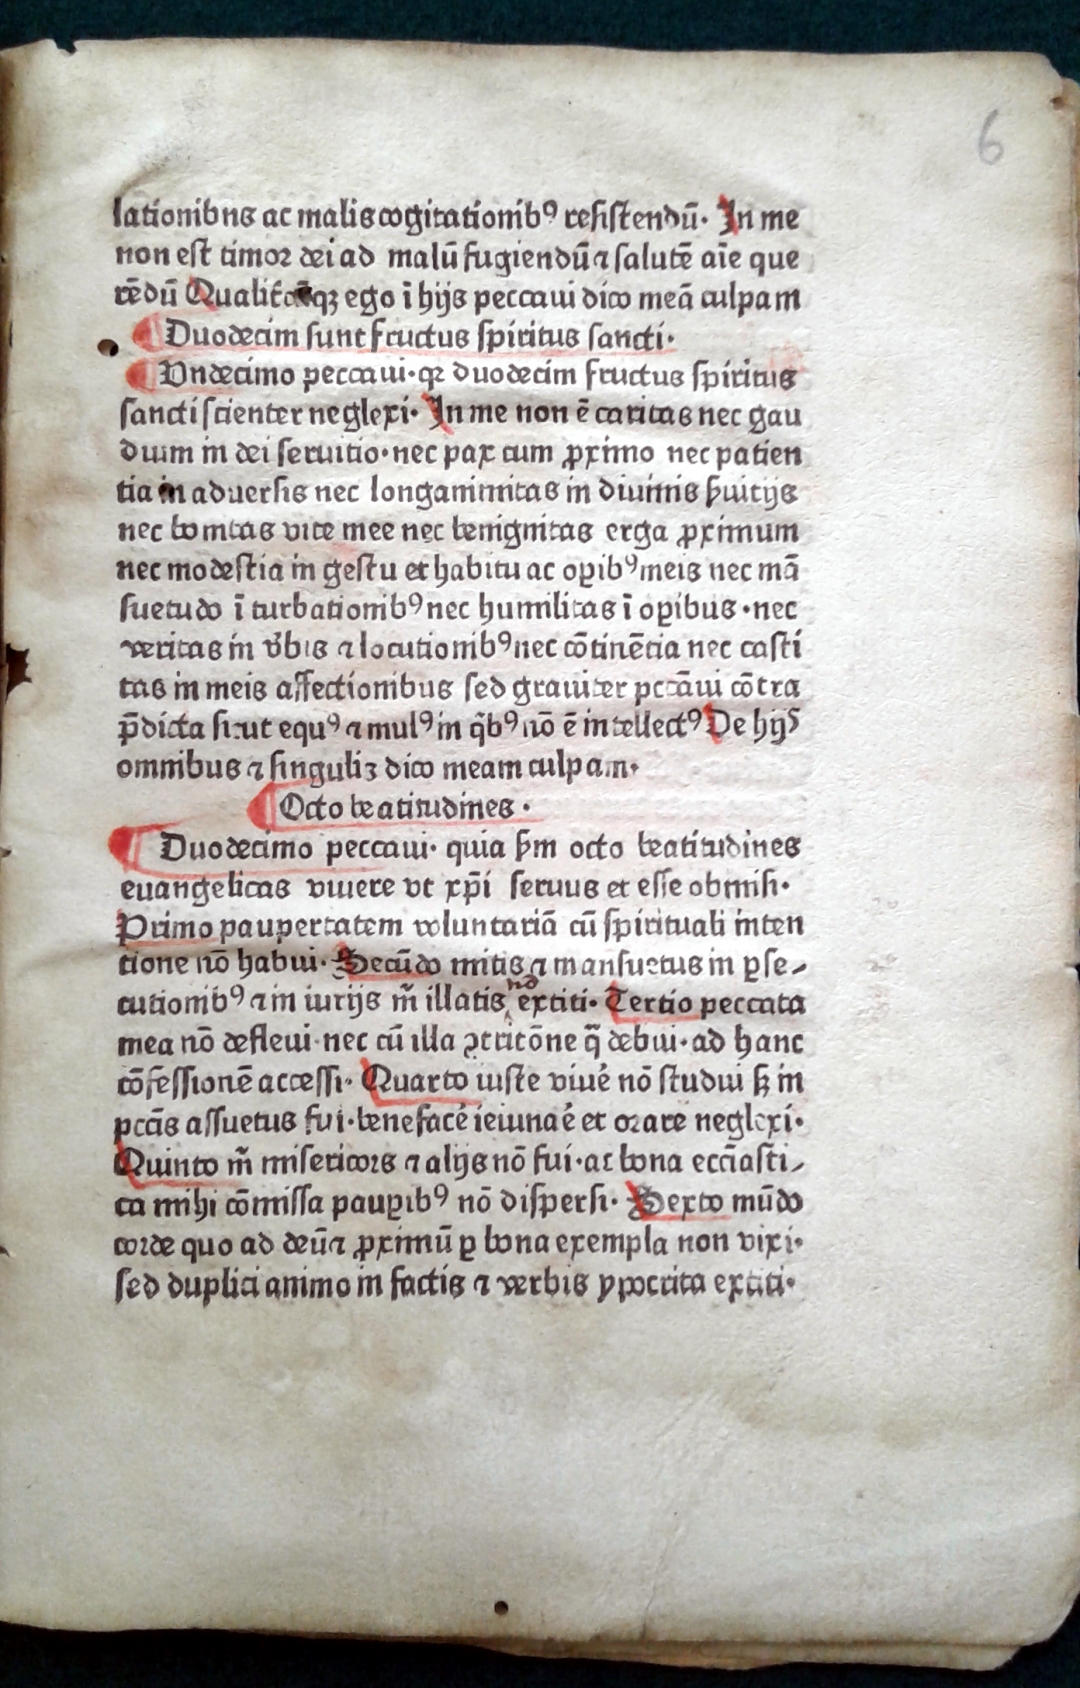 6
lationibus ac malis cogitationibꝰ resistendū. In me
non est timor dei ad malū fugiendū ⁊ salutē aīe que
rēdū Qualit̄ cūqꝫ ego ī hijs peccaui dico meā culpam
¶ Duodecim sunt fructus spiritus sancti.
¶ Vndecimo peccaui. qꝛ duodecim fructus spiritus
sancti scienter neglexi. In me non ē caritas nec gau
dium in dei seruitio. nec pax cum ꝓximo nec patien
tia in aduersis nec longanimitas in diuinis ẜuitijs
nec bonitas vite mee nec benignitas erga ꝓximum
nec modestia in gestu et habitu ac oꝑibꝰ meis nec mā
suetudo ī turbationibꝰ nec humilitas ī oꝑibus. nec
veritas in v̄bis ⁊ locutionibꝰ nec cōtinētia nec casti
tas in meis affectionibus sed grauiter peccāui cōtra
p̄dicta sicut equꝰ ⁊ mulꝰ in q̄bꝰ nō ē intellectꝰ De hijs
omnibus ⁊ singulis dico meam culpam.
¶ Octo beatitudines.
¶ Duodecimo peccaui. quia ẜm octo beatitudines
euangelicas viuere vt xp̄i seruus et esse obmisi.
Primo paupertatem voluntariā cū spirituali inten
tione nō habui. Secūdo mitis ⁊ mansuetus in ꝑse⸗
cutionibꝰ ⁊ in iurijs m̄ illatis nō extiti. Tertio peccata
mea nō defleui. nec cū illa ꝯtritōne q̄ debui. ad hanc
cōfessionē accessi. Quarto iuste viuē nō studui sꝫ in
pctīs assuetus fui. benefacē ieiunaē et orare neglexi.
Quinto m̄ misericors ⁊ alijs nō fui. ac bona ecc̄iasti⸗
ca mihi cōmissa pauꝑibꝰ nō dispersi. Sexto mūdo
corde quo ad deū ⁊ ꝓximū ꝑ bona exempla non vixi.
sed duplici animo in factis ⁊ verbis ypocrita extiti.